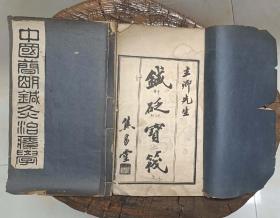 中國簡明鍼灸治療學
卿先生
鍼砭寶筏
焦易堂